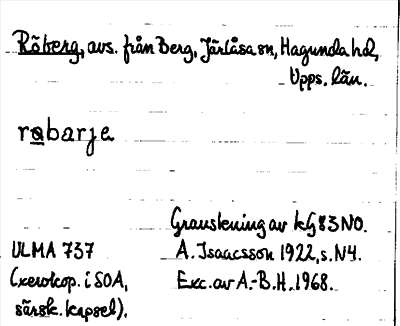 Röberg, avs. från Berg, Järlåsa sn, Hagunda hd,
Upps. län.
rabarje
Granskning av kG 83 NO.
ULMA 737 A. Isaacsson 1922, s. N4.
(xerokop. i SOA, Exc. av A.-B. H. 1968.
särsk. kapsel).